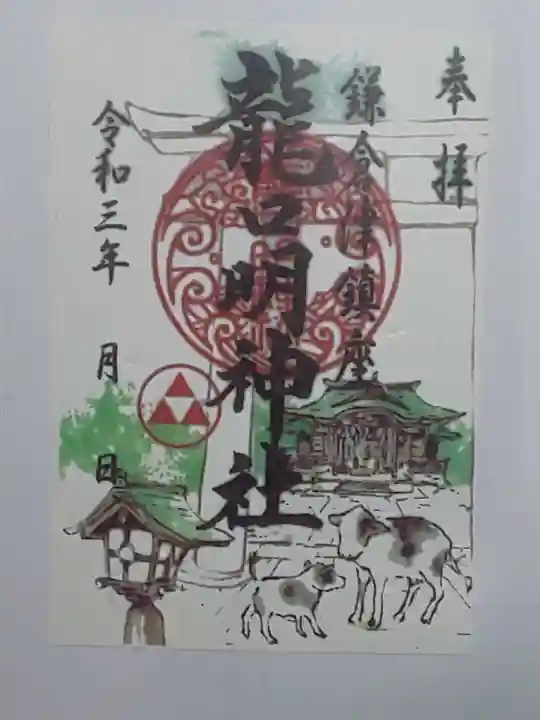 奉拝
鎌倉津鎮座
龍口明神社
令和三年 月 日